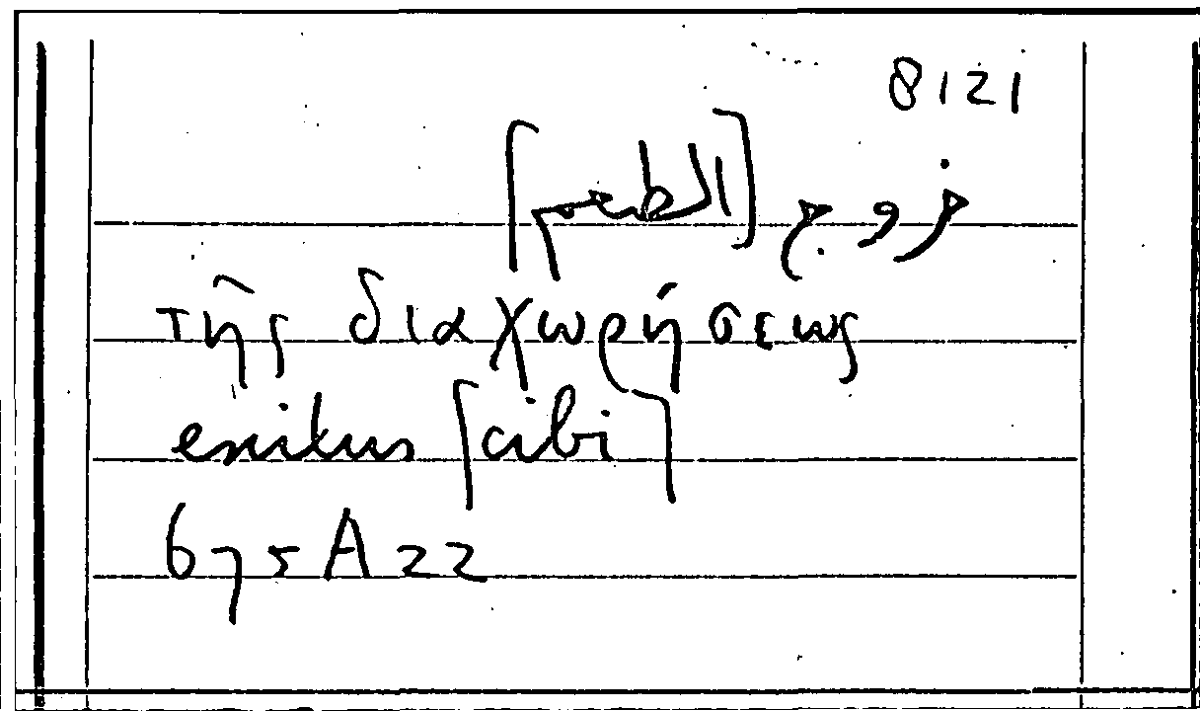 8121
خروج [الطعم]
τῆς διαχωρήσεως
exitus [cibi]
675A22